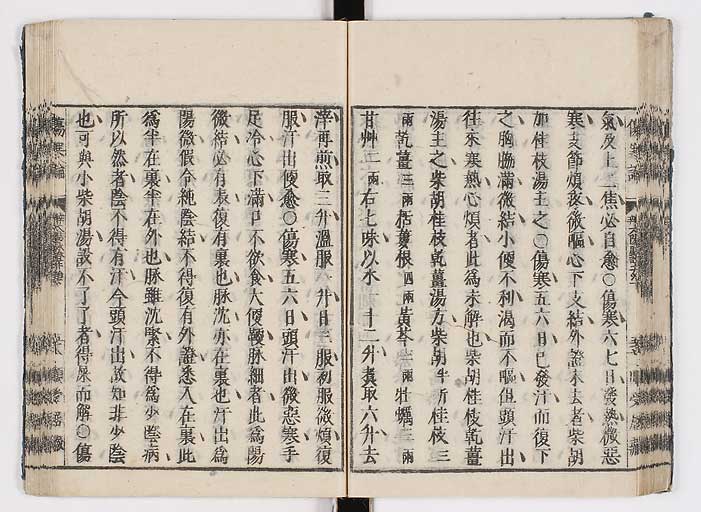 氣及上二焦必自愈○傷寒六七日發熱微惡
寒支節煩疼微嘔心下支結外證未去者柴胡
加桂枝湯主之○傷寒五六日已發汗而復下
之胸脇滿微結小便不利渴而不嘔但頭汗出
往來寒熱心煩者此爲未解也柴胡桂枝乾薑
湯主之柴胡桂枝乾薑湯方柴胡半斤桂枝三
兩乾薑三兩栝蔞根四兩黃芩三兩牡蠣三兩
甘艸二兩右七味以水一十二升煑取六升去
滓再煎取三升溫服一升日三服初服微煩復
服汗出便愈○傷寒五六日頭汗出微惡寒手
足冷心下滿口不欲食大便鞕脉細者此爲陽
微結必有表復有裏也脉沈亦在裏也汗出爲
陽微假令純陰結不得復有外證悉入在裏此
爲半在裏半在外也脉雖沈緊不得爲少陰病
所以然者陰不得有汗今頭汗出故知非少陰
也可與小柴胡湯設不了了者得屎而解○傷
傷寒論